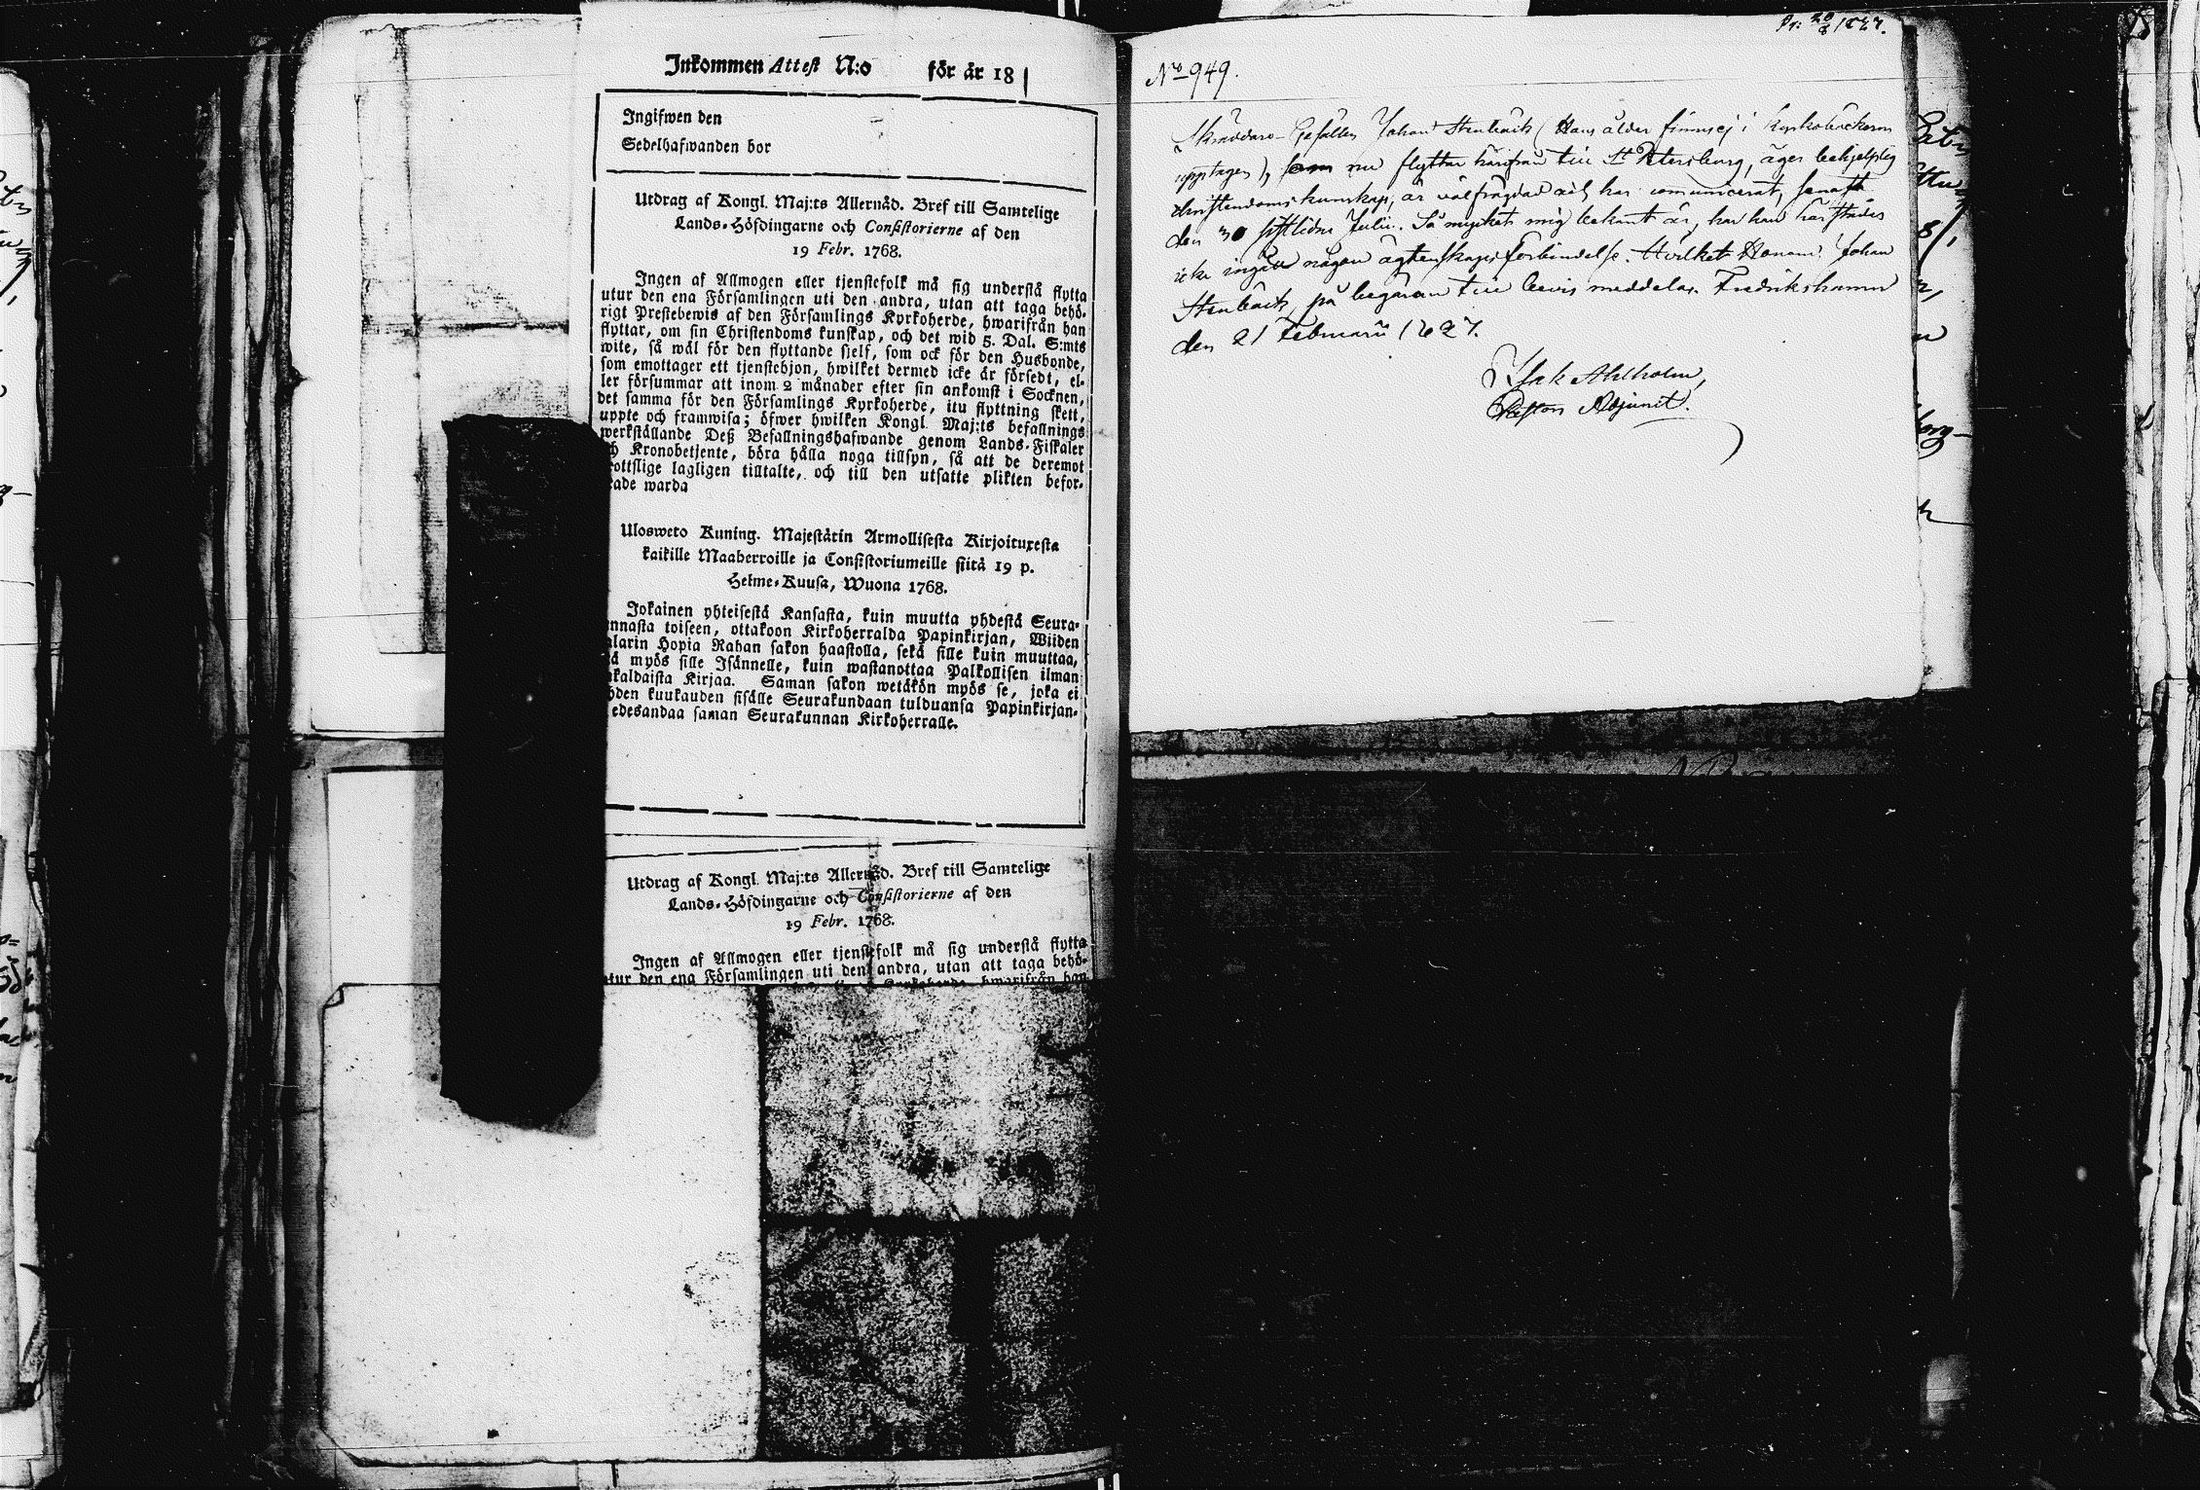 Inkommen Attest N:o för år 18
Ingifwen den
Sedelhafwanden bor
Utdrag af Kongl. Maj:ts Allernåd. Bref till Samtelige
Lands-Höfdingarne och Consistorierne af den
19 Febr. 1768.
Ingen af Allmogen eller tjenstefolk må sig understå flytta
utur den ena Församlingen uti den andra, utan att taga behö-
rigt Prestebewis af den Församlings Kyrkoherde, hwarifrån han
flyttar, om sin Christendoms kunskap, och det wid 5. Dal. S:mts
wite, så wäl för den flyttande sjelf, som ock för den Husbonde,
som emottager ett tjenstehjon, hwilket dermed icke är försedt, el-
ler försummar att inom 2 månader efter sin ankomst i Socknen,
det samma för den Församlings Kyrkoherde, itu flyttning skett,
uppte och framwisa; öfwer hwilken Kongl. Maj:ts befallnings
werkställande Deß Befallningshafwande genom Lands-Fiskaler
ch Kronobetjente, böra hålla noga tillsyn, så att de deremot
rottslige lagligen tilltalte, och till den utsatte plikten befor-
rade warda
Ulosweto Kuning. Majestätin Armollisesta Kirjoituxesta
kaikille Maaherroille ja Consistoriumeille siitä 19 p.
Helme-Kuusa, Wuona 1768.
Jokainen yhteisestä Kansasta, kuin muutta yhdestä Seura-
unnasta toiseen, ottakoon Kirkoherralda Papinkirjan, Wiiden
alarin Hopia Rahan sakon haastolla, sekä sille kuin muuttaa,
ä myös sille Isännelle, kuin wastanottaa Palkollisen ilman
nkaldaista Kirjaa. Saman sakon wetäkön myös se, joka ei
hden kuukauden sisälle Seurakundaan tulduansa Papinkirjan-
edesandaa saman Seurakunnan Kirkoherralle.
Utdrag af Kongl. Maj:ts Allernåd. Bref till Samtelige
Lands-Höfdingarne och Consistorierne af den
19 Febr. 1768.
Ingen af Allmogen eller tjenstefolk må sig understå flytta
utur den ena Församlingen uti den andra, utan att taga behö-
Kyrkoherde, hwarifrån han
No 949.
Skräddare-Gesällen Johan Stenbäck (Hans ålder finnes ej i Kyrkoböckerna
upptagen), som nu flyttar härifrån till St Petersburg, äger behjelplig
christendomskunskap, är välfrägdad och har communicerat, senast
den 30 sistlidne Julii. Så mycket mig bekant är, har han härstädes
icke ingått någon ägtenskapsförbindelse. Hvilket Honom Johan
Stenbäck, på begäran till bevis meddelas. Fredrikshamn
den 21 Februarii 1827.
Isak Ahlholm,
Pastors Adjunct.